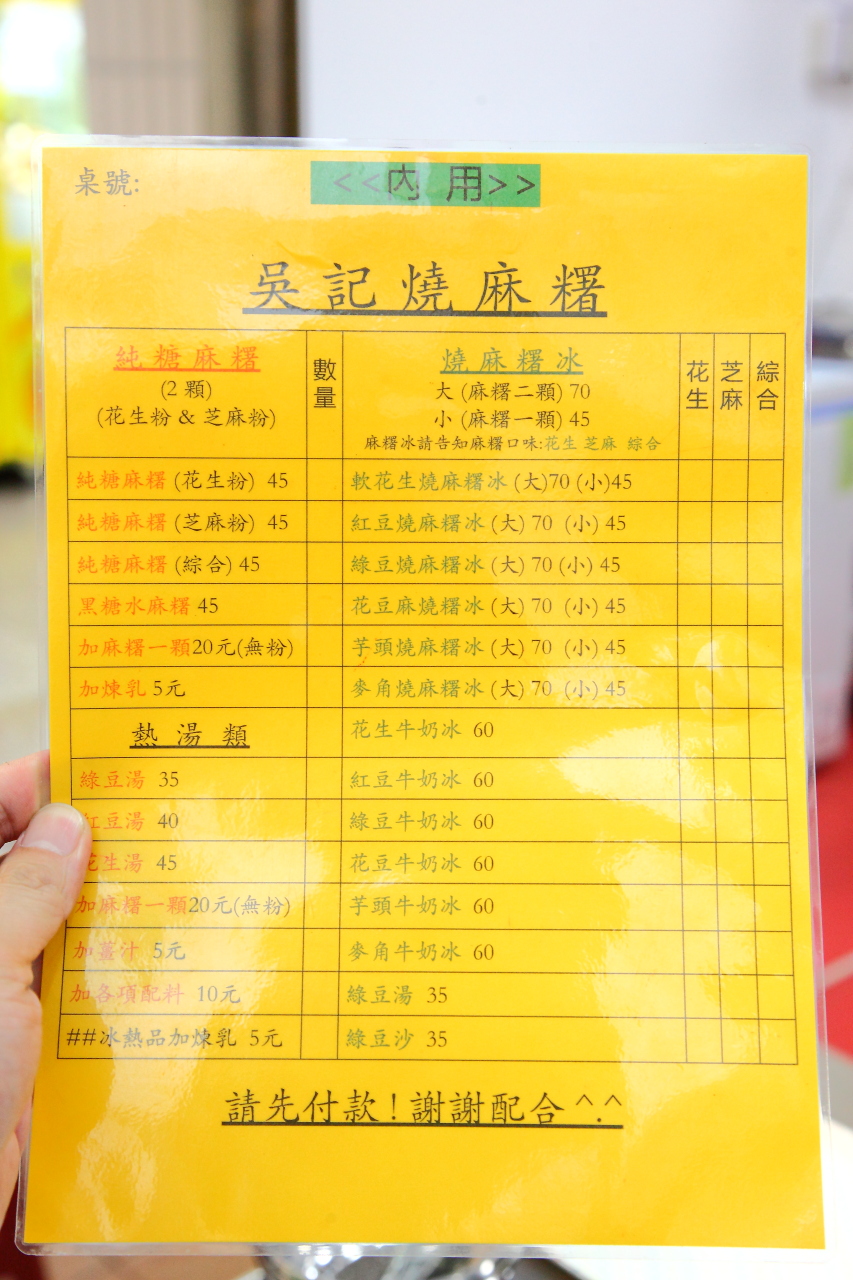 桌號:
<<內 用>>
吳記燒麻糬
純糖麻糬
(2 顆)
(花生粉 & 芝麻粉)
數量
燒麻糬冰
大 (麻糬二顆) 70
小 (麻糬一顆) 45
麻糬冰請告知麻糬口味:花生 芝麻 綜合
花生
芝麻
綜合
純糖麻糬 (花生粉) 45
軟花生燒麻糬冰 (大)70 (小)45
純糖麻糬 (芝麻粉) 45
紅豆燒麻糬冰 (大) 70 (小) 45
純糖麻糬 (綜合) 45
綠豆燒麻糬冰 (大) 70 (小) 45
黑糖水麻糬 45
花豆麻燒糬冰 (大) 70 (小) 45
加麻糬一顆20元(無粉)
芋頭燒麻糬冰 (大) 70 (小) 45
加煉乳 5元
麥角燒麻糬冰 (大) 70 (小) 45
熱 湯 類
花生牛奶冰 60
綠豆湯 35
紅豆牛奶冰 60
紅豆湯 40
綠豆牛奶冰 60
花生湯 45
花豆牛奶冰 60
加麻糬一顆20元(無粉)
芋頭牛奶冰 60
加薑汁 5元
麥角牛奶冰 60
加各項配料 10元
綠豆湯 35
##冰熱品加煉乳 5元
綠豆沙 35
請先付款!謝謝配合^.^